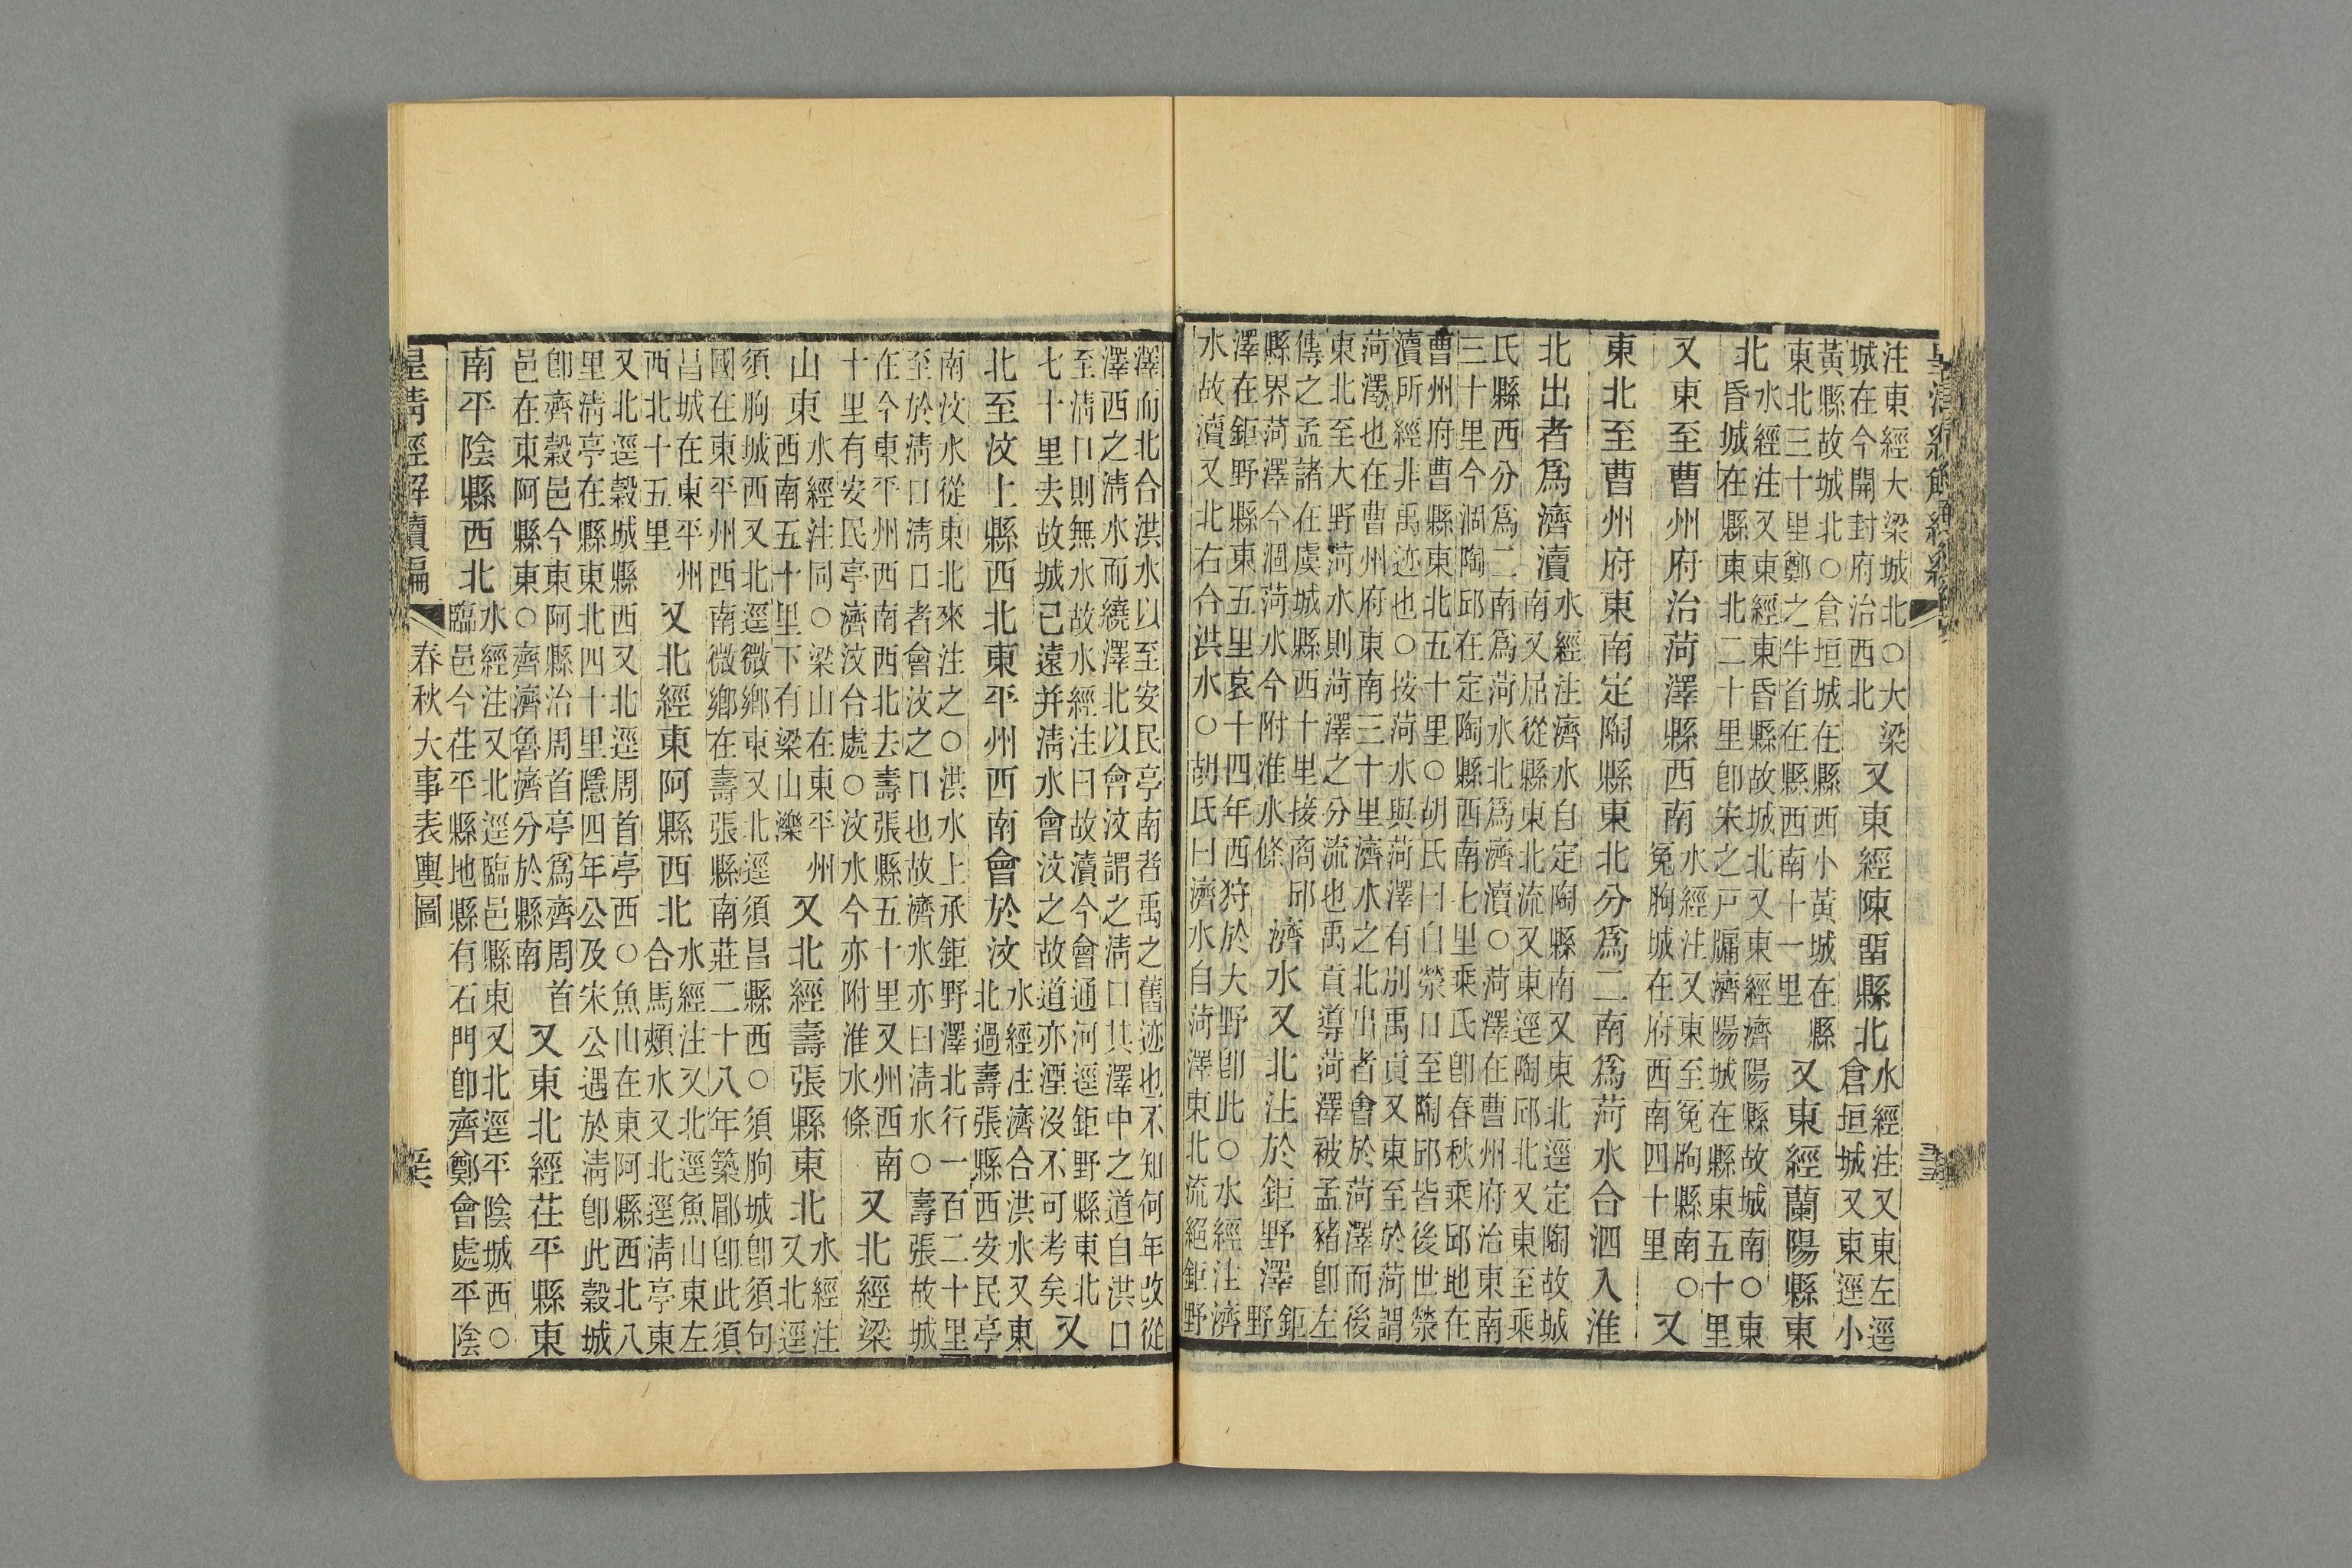 注東經大梁城北○大梁
城在今開封府治西北
又東經陳畱縣北
水經注又東左逕
倉垣城又東逕小
黃縣故城北○倉垣城在縣西小黃城在縣
東北三十里鄭之牛首在縣西南十一里
又東經蘭陽縣東
北
水經注又東經東昏縣故城北又東經濟陽縣故城南○東
昏城在縣東北二十里卽宋之戸牖濟陽城在縣東五十里
又東至曹州府治菏澤縣西南
水經注又東至冤朐縣南○
冤朐城在府西南四十里
又
東北至曹州府東南定陶縣東北分爲二南爲菏水合泗入淮
北出者爲濟瀆
水經注濟水自定陶縣南又東北逕定陶故城
南又屈從縣東北流又東逕陶邱北又東至乘
氏縣西分爲二南爲菏水北爲濟瀆○菏澤在曹州府治東南
三十里今涸陶邱在定陶縣西南七里乘氏卽春秋乘邱地在
曹州府曹縣東北五十里○胡氏曰自滎口至陶邱皆後世滎
瀆所經非禹迹也○按菏水與菏澤有別禹貢又東至於菏謂
菏澤也在曹州府東南三十里濟水之北出者會於菏澤而後
東北至大野菏水則菏澤之分流也禹貢導菏澤被孟豬卽左
傳之孟諸在虞城縣西十里接商邱
縣界菏澤今涸菏水今附淮水條
濟水又北注於鉅野澤
鉅
野
澤在鉅野縣東五里哀十四年西狩於大野卽此○水經注濟
水故瀆又北右合洪水○胡氏曰濟水自菏澤東北流絕鉅野
澤而北合洪水以至安民亭南者禹之舊迹也不知何年改從
澤西之淸水而繞澤北以會汶謂之淸口其澤中之道自洪口
至淸口則無水故水經注曰故瀆今會通河逕鉅野縣東北
七十里去故城已遠并淸水會汶之故道亦湮沒不可考矣
又
北至汶上縣西北東平州西南會於汶
水經注濟合洪水又東
北過壽張縣西安民亭
南汶水從東北來注之○洪水上承鉅野澤北行一百二十里
至於淸口淸口者會汶之口也故濟水亦曰淸水○壽張故城
在今東平州西南西北去壽張縣五十里又州西南
十里有安民亭濟汶合處○汶水今亦附淮水條
又北經梁
山東
水經注同○梁山在東平州
西南五十里下有梁山濼
又北經壽張縣東北
水經注
又北逕
須朐城西又北逕微鄕東又北逕須昌縣西○須朐城卽須句
國在東平州西南微鄕在壽張縣南莊二十八年築郿卽此須
昌城在東平州
西北十五里
又北經東阿縣西北
水經注又北逕魚山東左
合馬頰水又北逕淸亭東
又北逕穀城縣西又北逕周首亭西○魚山在東阿縣西北八
里淸亭在縣東北四十里隱四年公及宋公遇於淸卽此穀城
卽齊穀邑今東阿縣治周首亭爲齊周首
邑在東阿縣東○齊濟魯濟分於縣南
又東北經茌平縣東
南平陰縣西北
水經注又北逕臨邑縣東又北逕平陰城西○
臨邑今茌平縣地縣有石門卽齊鄭會處平陰
皇淸經解續編
春秋大事表輿圖